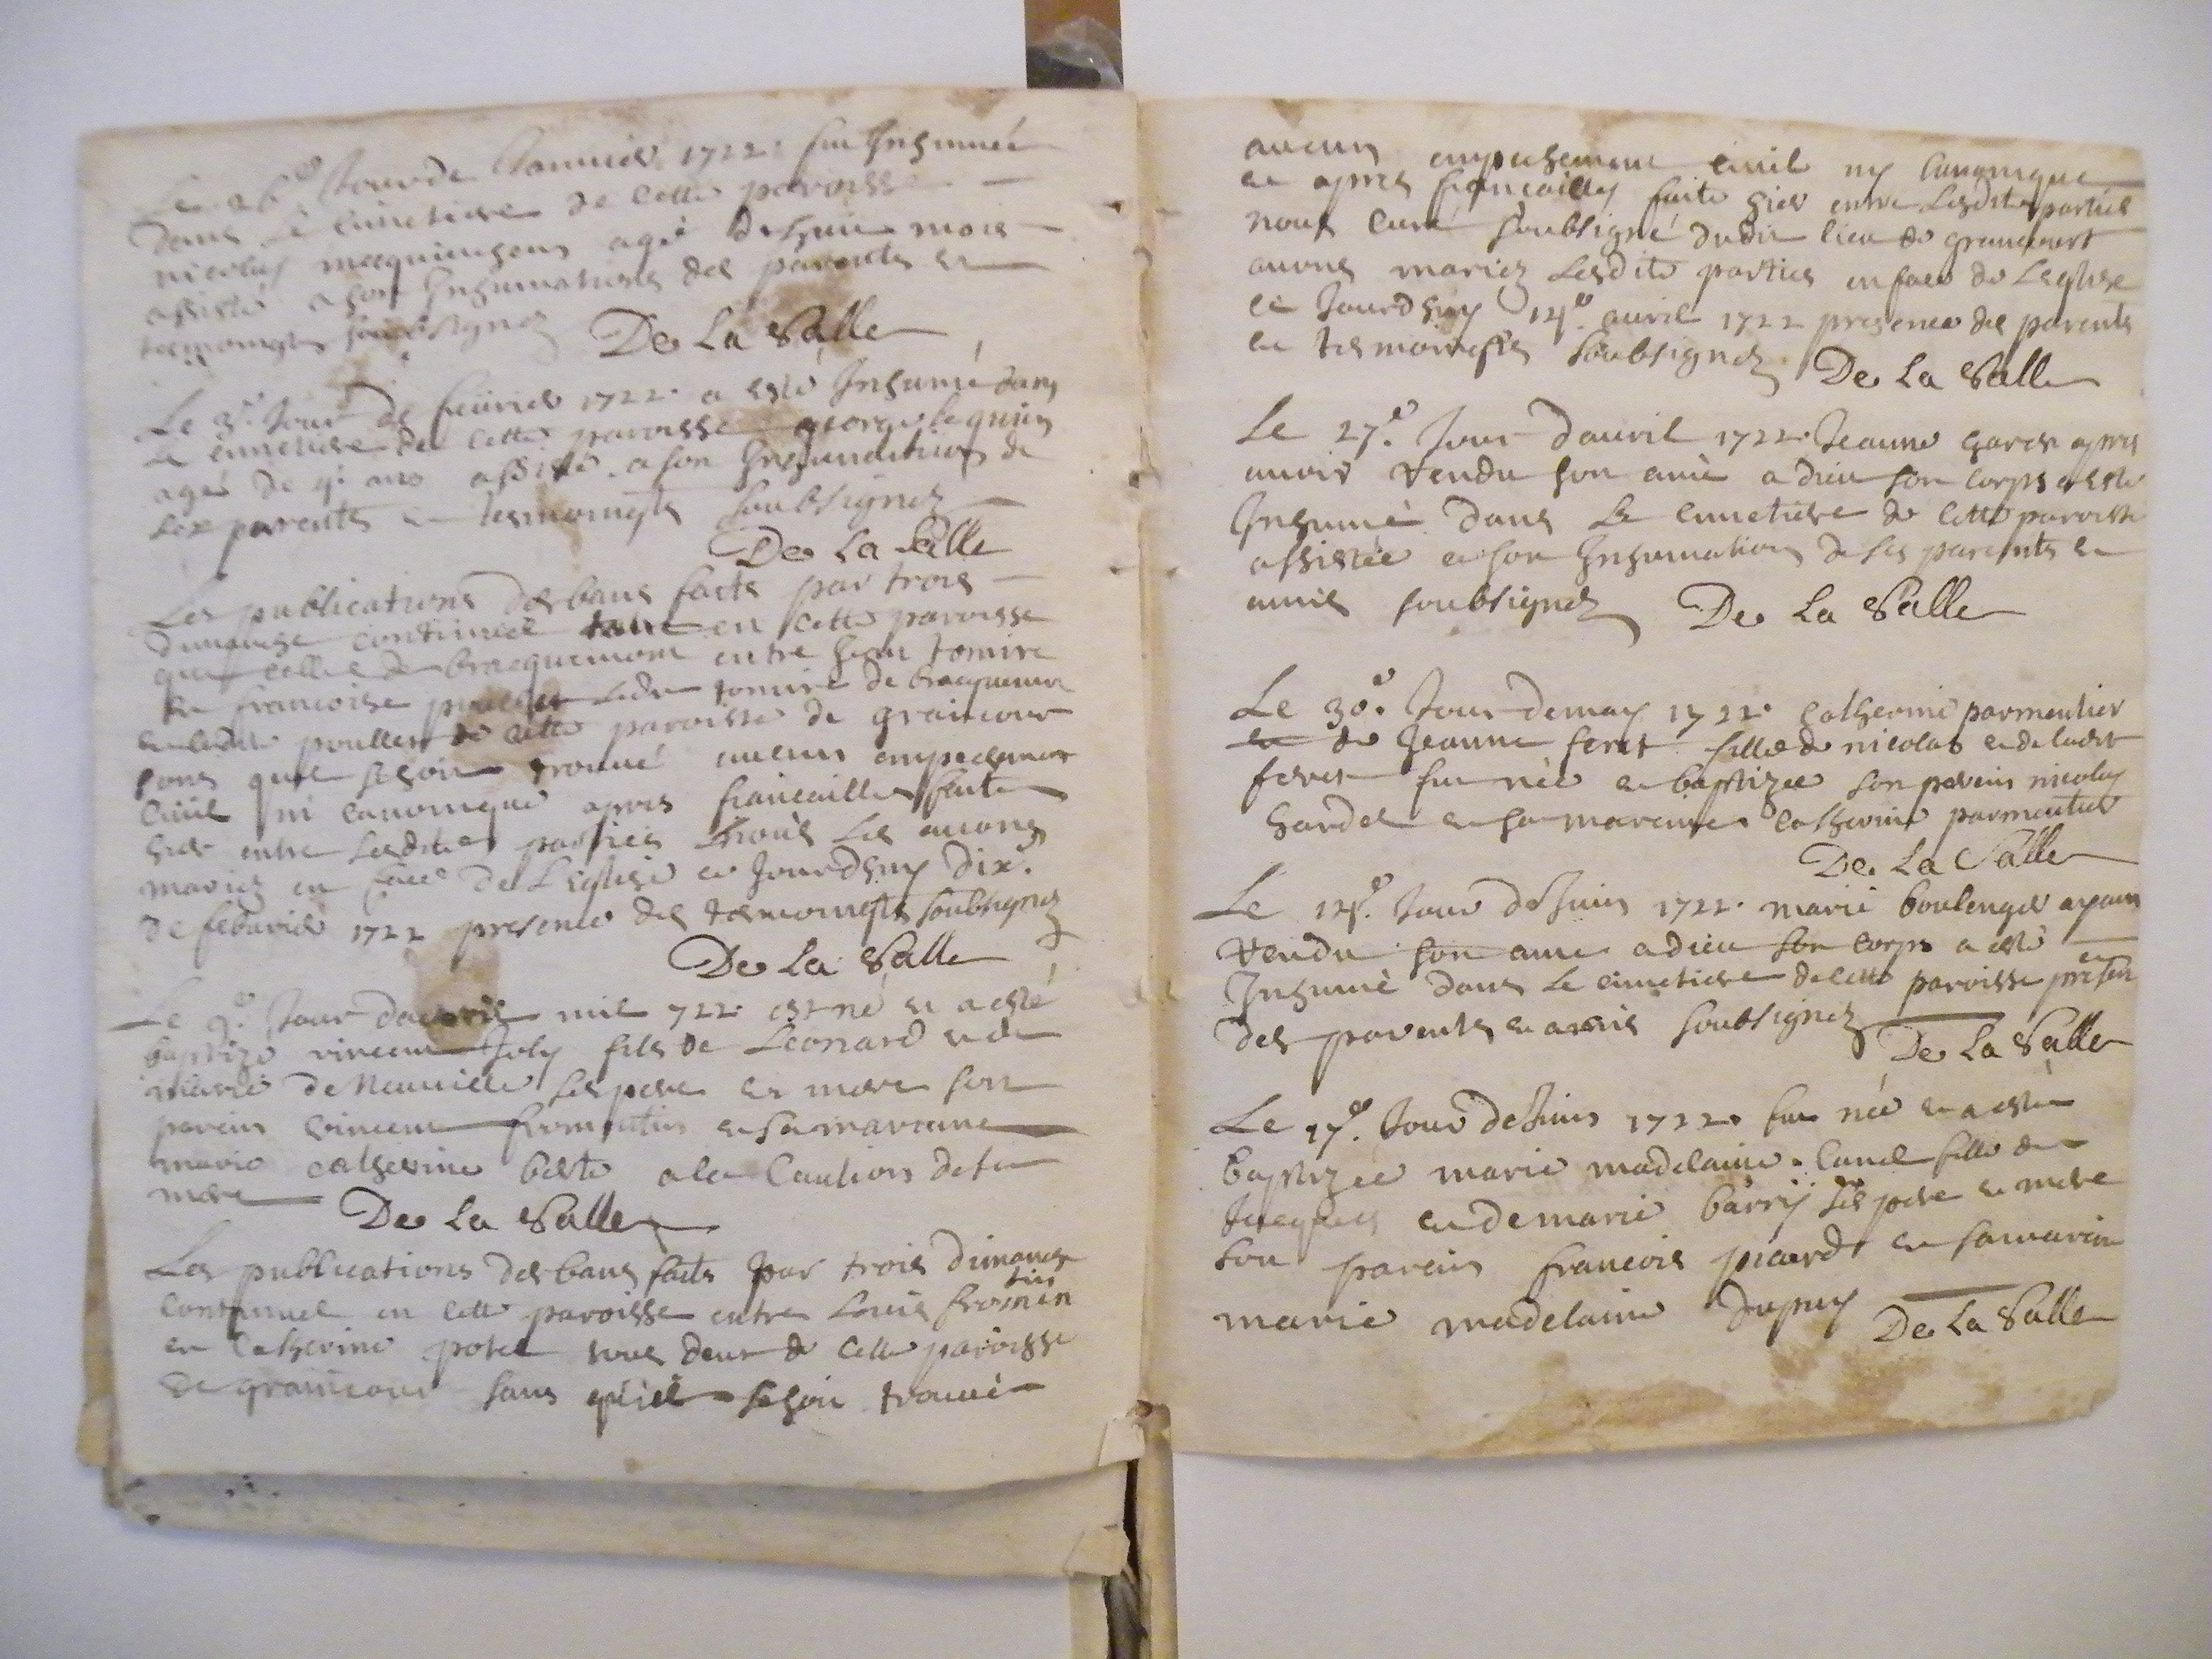 Le 26e Jour de Januier 1722. fut Inhumée
dans le cimetiere de cette paroisse
nicolas agé de huit mois
assisté a son Inhumations des parents et
tesmoingts soubsignez De La Salle
Le 3e. Jour de feüvrier 1722. a esté Inhumé dans
le cimetiere de cette paroisse george lequien
agé de 4. ans assisté a son Inhumation de
ses parents et tesmoingts soubsignez
De La Salle
Les publications des bans faits par trois
dimanche continuel en cette paroisse
que celle de bracquemont entre Jean tomire
et francoise poullet ledit tomire de bracquemont
et ladite poullet de cette paroisse de graincourt
sans quil se soit trouué aucun empechement
ciüil ni canonique apres fiancailles faite
hier entre lesdites parties nous les auons
mariez en face de L'eglise ce Jourdhuy dixe.
de febvrier 1722 presence des tesmoingts soubsignez
De La Salle
Le 9e. Jour dauril mil 722. est né et a esté
baptizé vincent Joly fils de Leonard et de
marie de Neuuille ses pere et mere son
parein vincent fromentin et sa mareine
marie catherine berte a la Caution de sa
mere De La Salle
Les publications des bans faits par trois dimanche
continuel en cette paroisse entre Louis fromentin
et Catherine potel tous deux de cette paroisse
de graincour sans qu'il se soit trouué
aucun empeschement ciuil ny canonique
et apres fiancailles faite hier entre lesdites parties
nous curé soubsigné dudit lieu de graincourt
auons mariez lesdite parties en face de L'eglise
ce Jourdhuy 14e. auril 1722 presence des parents
et tesmoingts soubsignez De La Salle
Le 27e. Jour d'auril 1722. Jeanne apres
auoir rendu son ame a dieu son corps a esté
Inhumé dans le cimetiere de cette paroisse
assistée a son Inhumation de ses parents et
amis soubsignez De La Salle
Le 30e. Jour de may 1722. Catherine parmentier
et de Jeanne feret fille de nicolas et de ladit
feret fut née et baptizee son parein nicolas
hardel et sa mareine Catherine parmentier
De La Salle
Le 14e. Jour de Juin 1722. marie boulenger ayant
rendu son ame a dieu son corps a esté
Inhumé dans le cimetiere de cette paroisse presen
ce
des parents et amis soubsignez De La Salle
Le 17e. Jour de Juin 1722. fut née et a esté
baptizée marie madelaine Canel fille de
Jacques et de marie barry ses pere et mere
son parein francois picard et sa mareine
marie madelaine Dupuy De La Salle